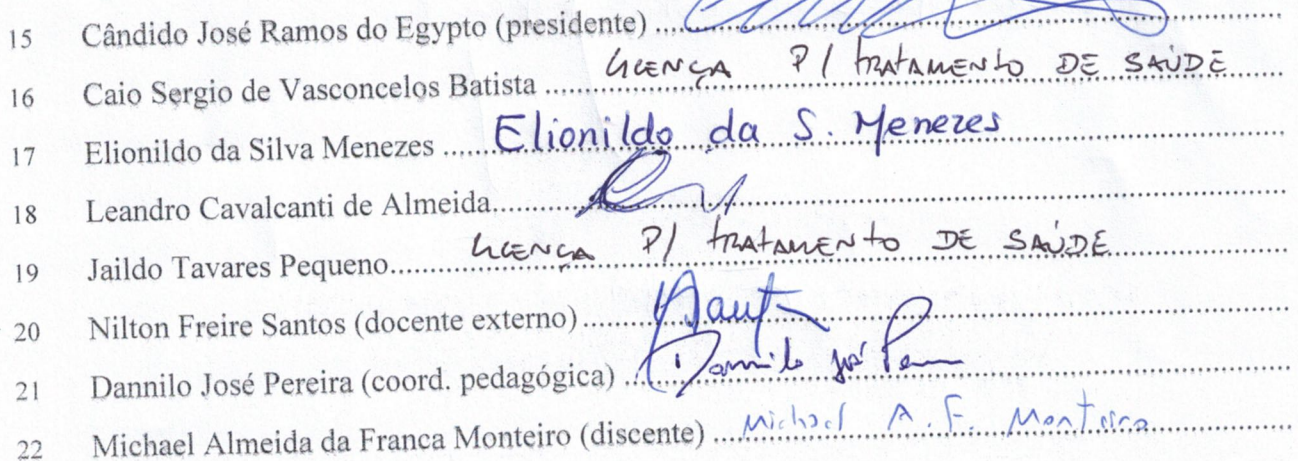 15 Cândido José Ramos do Egypto (presidente)
16 Caio Sergio de Vasconcelos Batista LICENÇA P/ TRATAMENTO DE SAÚDE
17 Elionildo da Silva Menezes Elionildo da S. Menezes
18 Leandro Cavalcanti de Almeida
19 Jaildo Tavares Pequeno LICENÇA P/ TRATAMENTO DE SAÚDE
20 Nilton Freire Santos (docente externo)
21 Dannilo José Pereira (coord. pedagógica) Dannilo José
22 Michael Almeida da Franca Monteiro (discente) Michael A. F. Monteiro